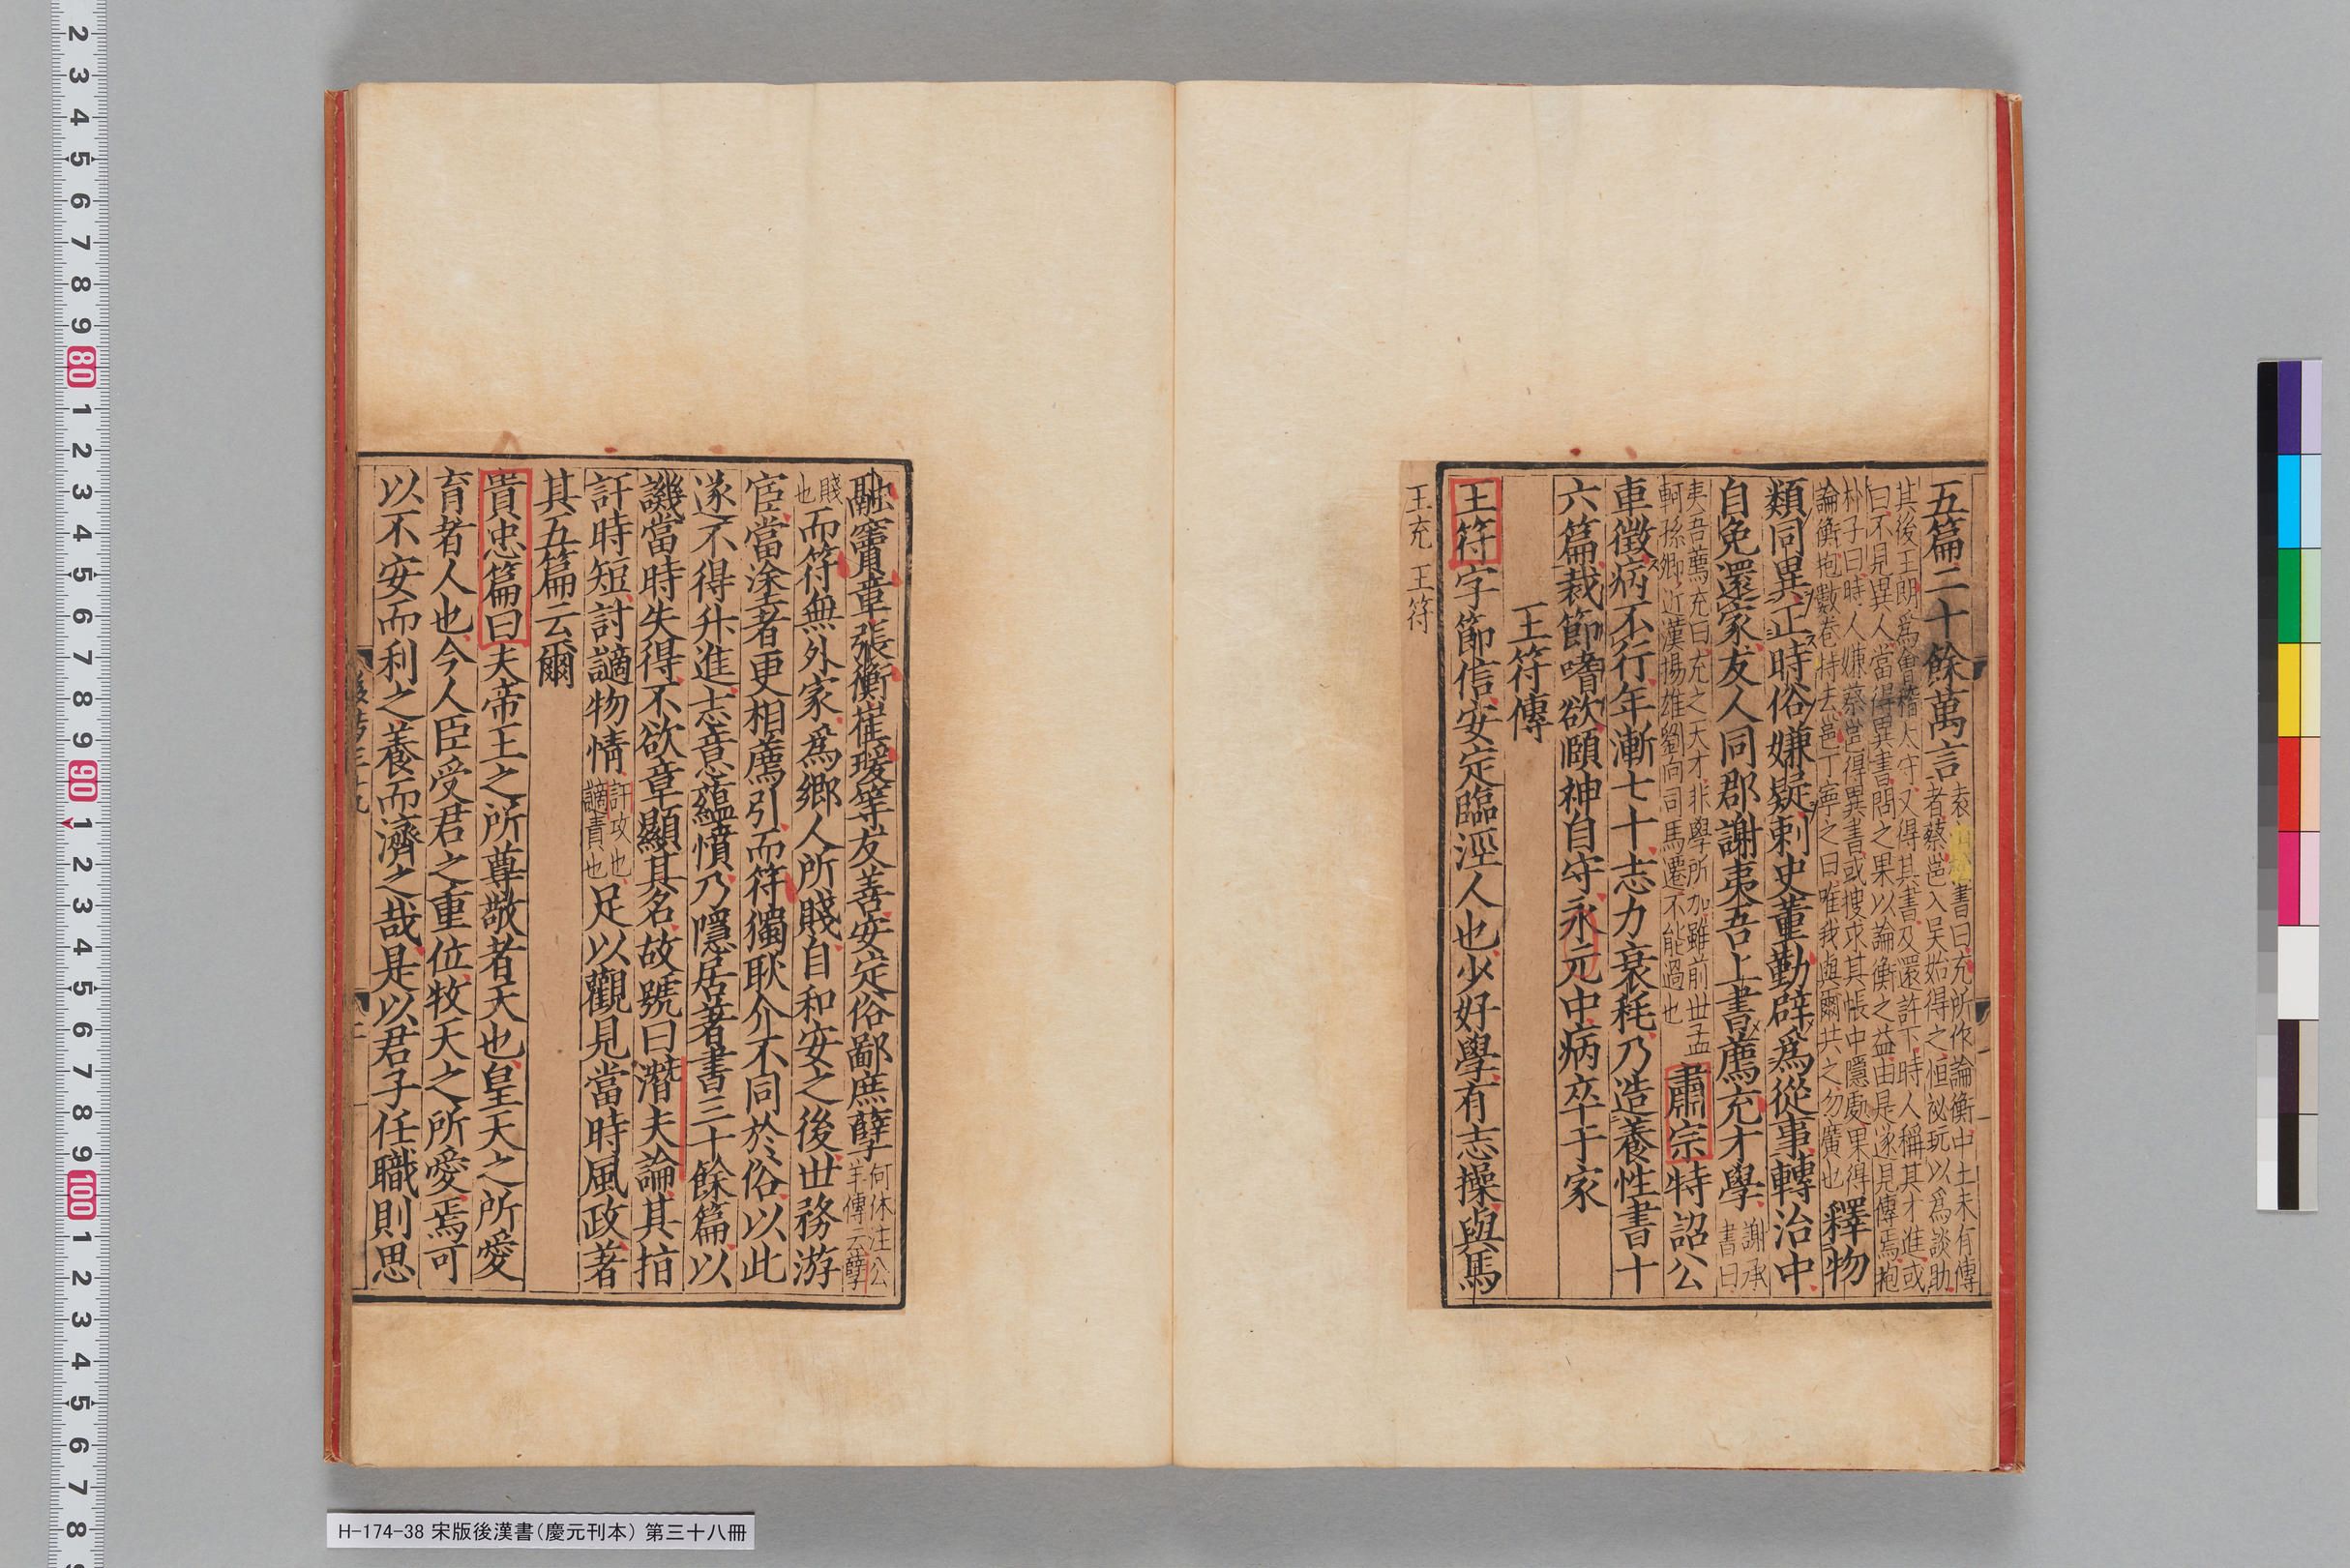 五篇二十餘萬言袁山松書曰充所作論衡中土未有傳者蔡邕入吳始得之恒祕玩以爲談助
其後王朗爲會稽太守又得其書及還許下時人稱其才進或曰不見異人當得異書問之果以論衡之益由是遂見傳焉抱
朴子曰時人嫌蔡邕得異書或搜求其帳中隱處果得論衡抱數卷持去邕丁寧之曰唯我與爾共之勿廣也釋物
類同異正時俗嫌疑刺史董勤辟爲從事轉治中
自免還家友人同郡謝夷吾上書薦充才學謝承書曰
夷吾薦充曰充之天才非學所加雖前世孟軻孫卿近漢揚雄劉向司馬遷不能過也肅宗特詔公
車徵病不行年漸七十志力衰耗乃造養性書十
六篇裁節嗜欲頤神自守永元中病卒于家
王符傳
王符字節信安定臨涇人也少好學有志操與馬
王充 王符
融竇章張衡崔瑗等友善安定俗鄙庶孽何休注公羊傳云孽
賤也而符無外家爲鄉人所賤自和安之後世務游
宦當塗者更相薦引而符獨耿介不同於俗以此
遂不得升進志意蘊憤乃隱居著書三十餘篇以
譏當時失得不欲章顯其名故號曰潛夫論其指
訐時短討謫物情訐攻也謫責也足以觀見當時風政著
其五篇云爾
貴忠篇曰夫帝王之所尊敬者天也皇天之所愛
育者人也今人臣受君之重位牧天之所愛焉可
以不安而利之養而濟之哉是以君子任職則思
H-174-38 宋版後漢書（慶元刊本） 第三十八冊
2
3
4
5
6
7
8
9
80
1
2
3
4
5
6
7
8
9
90
1
2
3
4
5
6
7
8
9
100
1
2
3
4
5
6
7
8